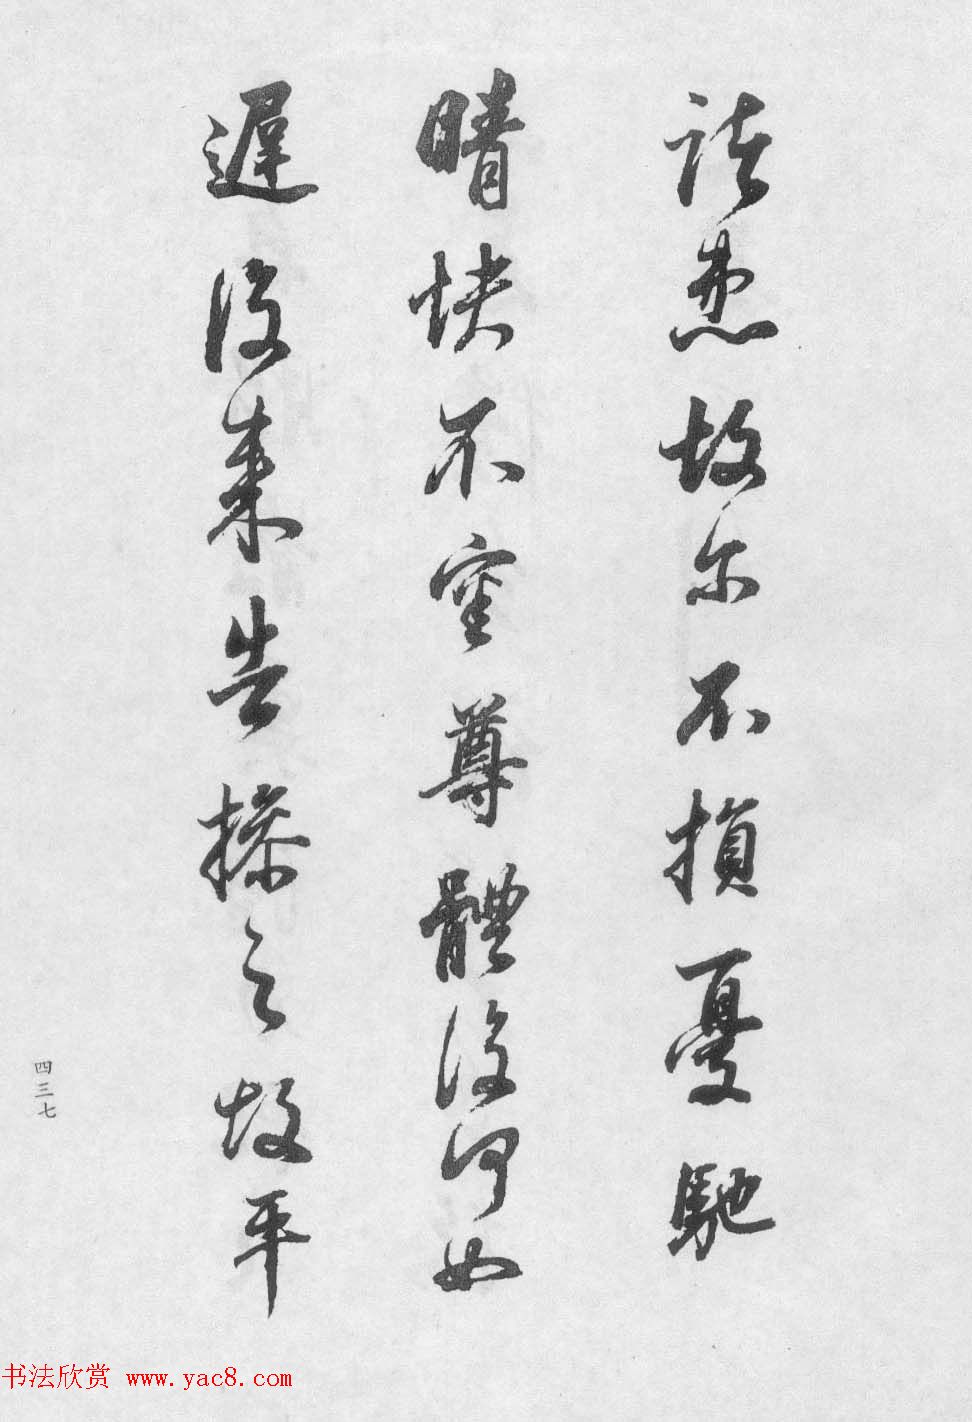 諸患故尔不損憂馳
晴快不審尊體復何如
遲復來告操之故平
四三七
书法欣赏 www.yac8.com